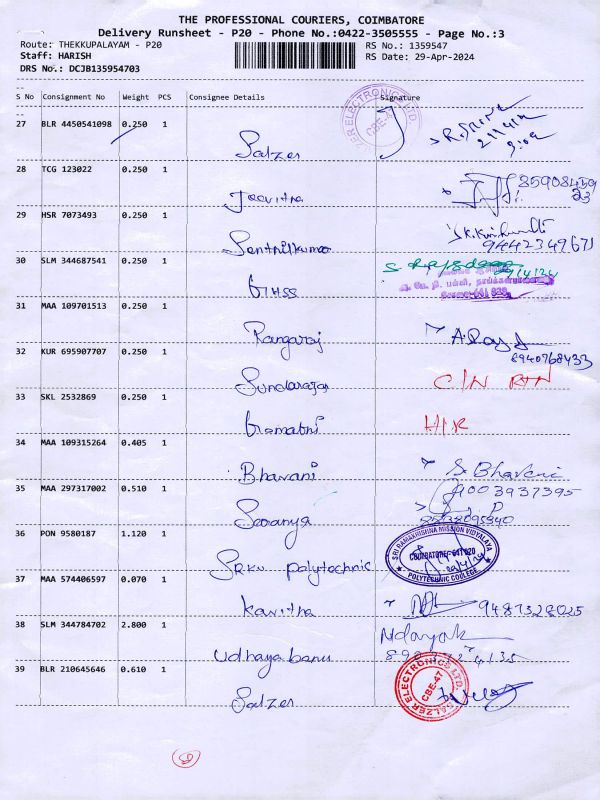 THE PROFESSIONAL COURIERS, COIMBATORE
Delivery Runsheet - P20 - Phone No.:0422-3505555 - Page No.:3
Route: THEKKUPALAYAM - P20
RS No.: 1359547
Staff: HARISH
RS Date: 29-Apr-2024
DRS No.: DCJB135954703
S No Consignment No Weight PCS Consignee Details Signature
27 BLR 4450541098 0.250 1
Salzer
SALZER ELECTRONICS LTD. CBE-47
28 TCG 123022 0.250 1
Jeevitha
29 HSR 7073493 0.250 1
Senthilkumar
9442349671
30 SLM 344687541 0.250 1
GHSS
31 MAA 109701513 0.250 1
Rangaraj
A.Raj
8940768433
32 KUR 695907707 0.250 1
Sundarajan
C/N RTN
33 SKL 2532869 0.250 1
Gomathi
H/R
34 MAA 109315264 0.405 1
Bhavani
S. Bhavani
9003937395
35 MAA 297317002 0.510 1
Saranya
36 PON 9580187 1.120 1
SRKV polytechnic
SRI RAMAKRISHNA MISSION VIDYALAYA
COIMBATORE-641 020
POLYTECHNIC COLLEGE
37 MAA 574406597 0.070 1
Kavitha
9487328025
38 SLM 344784702 2.800 1
Udhaya banu
39 BLR 210645646 0.610 1
Salzer
SALZER ELECTRONICS LTD. CBE-47